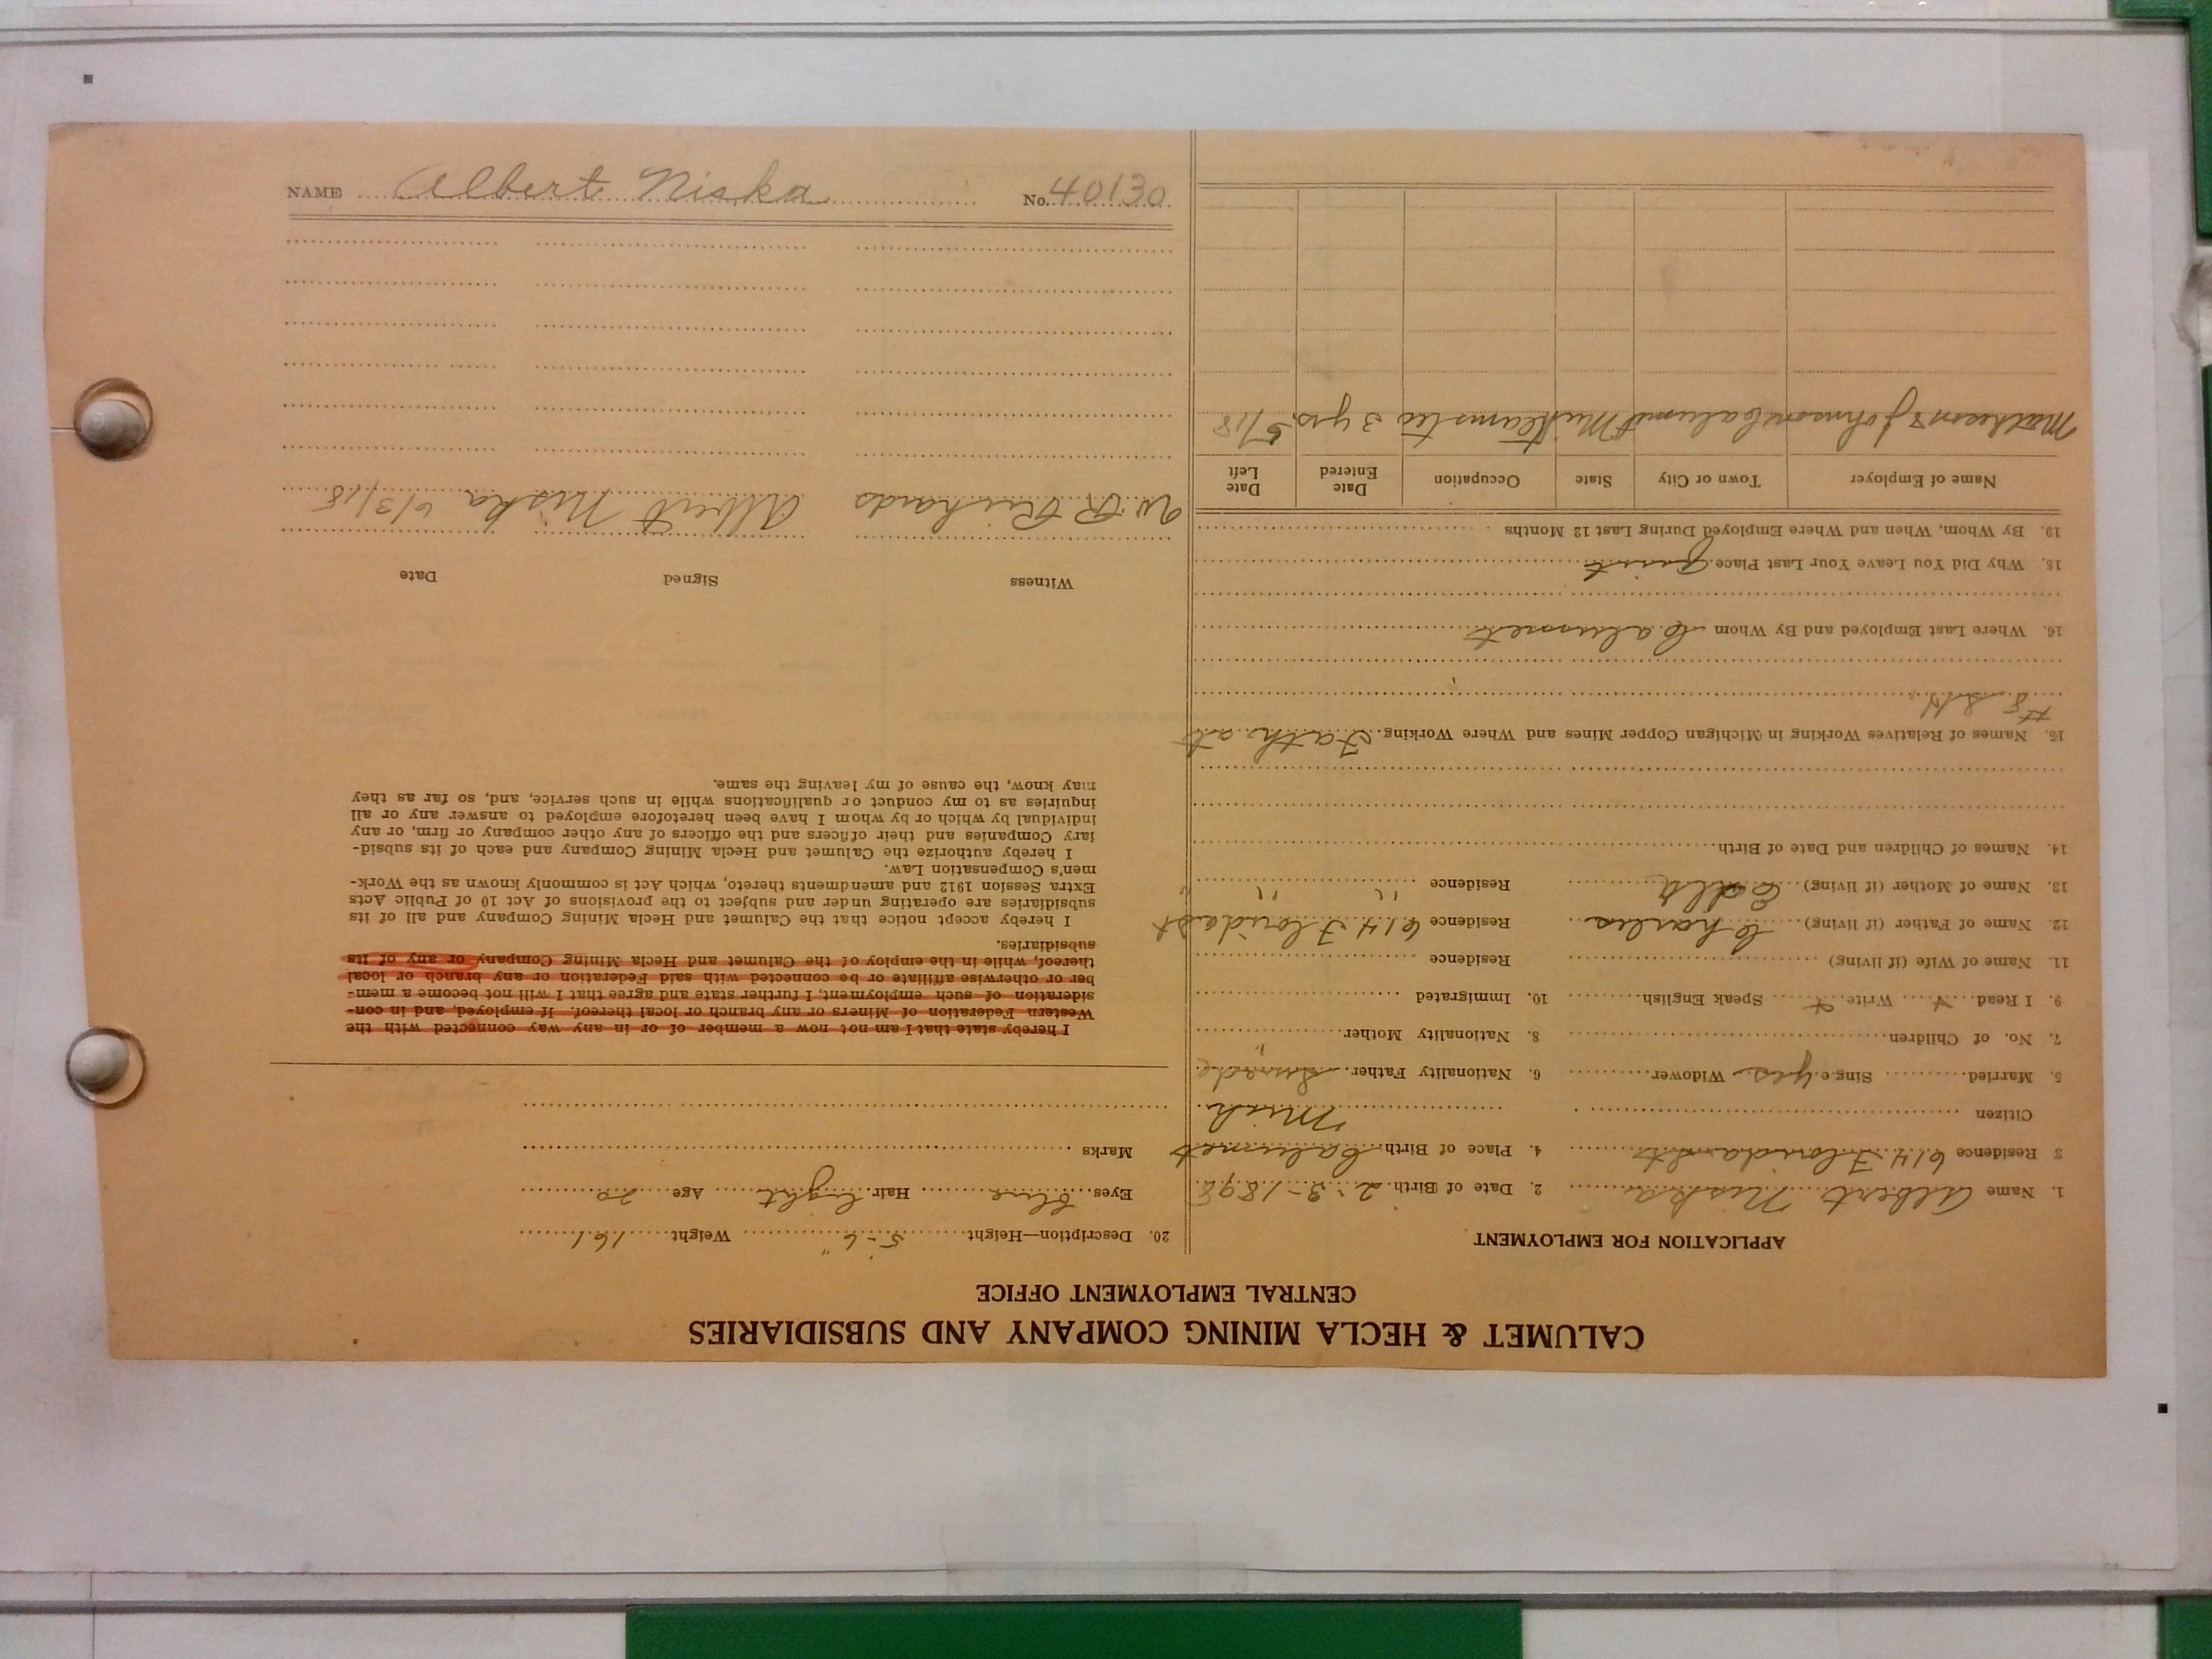 CALUMET & HECLA MINING COMPANY AND SUBSIDIARIES
CENTRAL EMPLOYMENT OFFICE
APPLICATION FOR EMPLOYMENT
1. Name Albert Niska 2. Date of Birth 2-3-1898
3 Residence 614 Florida St 4. Place of Birth Calumet
Citizen Mich
5. Married Single yes Widower 6. Nationality Father Swede
7. No. of Children 8. Nationality Mother "
9. I Read x Write x Speak English 10. Immigrated
11. Name of Wife (if living) Residence
12. Name of Father (if living) Charles Residence 614 Florida st
13. Name of Mother (if living) Residence " " "
14. Names of Children and Date of Birth
15. Names of Relatives Working in Michigan Copper Mines and Where Working Fath at
#8 SH
16. Where Last Employed and By Whom Calumet
18. Why Did You Leave Your Last Place Quit
19. By Whom, When and Where Employed During Last 12 Months
Name of Employer Town or City State Occupation Date Entered Date Left
Matheson & Johnson Calumet Mich Teamster 3 yrs. 5/18
20. Description—Height 5-6" Weight 161
Eyes blue Hair light Age 20
Marks
I hereby state that I am not now a member of or in any way connected with the
Western Federation of Miners or any branch or local thereof. If employed, and in con-
sideration of such employment, I further state and agree that I will not become a mem-
ber or otherwise affiliate or be connected with said Federation or any branch or local
thereof, while in the employ of the Calumet and Hecla Mining Company or any of its
subsidiaries.
I hereby accept notice that the Calumet and Hecla Mining Company and all of its
subsidiaries are operating under and subject to the provisions of Act 10 of Public Acts
Extra Session 1912 and amendments thereto, which Act is commonly known as the Work-
men's Compensation Law.
I hereby authorize the Calumet and Hecla Mining Company and each of its subsid-
iary Companies and their officers and the officers of any other company or firm, or any
individual by which or by whom I have been heretofore employed to answer any or all
inquiries as to my conduct or qualifications while in such service, and, so far as they
may know, the cause of my leaving the same.
Witness Signed Date
W. R. Richards Albert Niska 6/3/18
NAME Albert Niska No. 40130